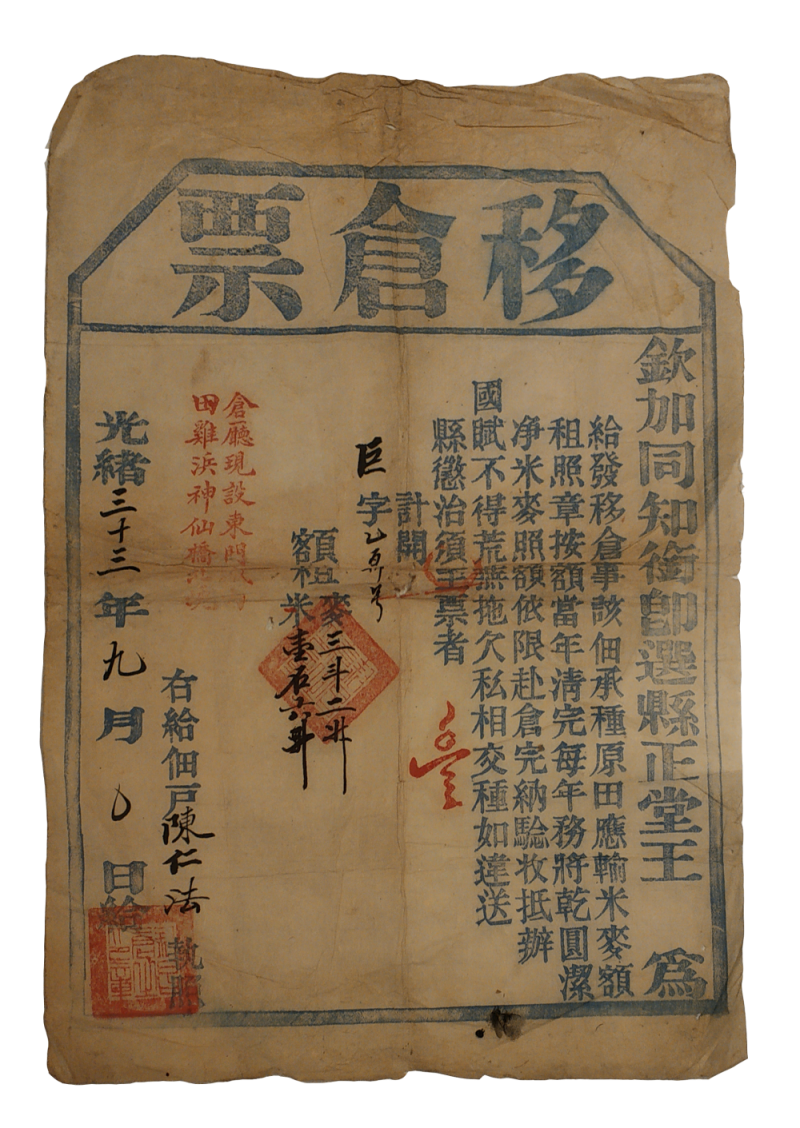 移倉票
欽加同知銜卽選縣正堂王　爲
給發移倉事該佃承種原田應輸米麥額
租照章按額當年清完每年務將乾圓潔
净米麥照額依限赴倉完納騐收抵辦
國賦不得荒蕪拖欠私相交種如違送
縣懲治須至票者
計開
巨字乙 号
額租麥三斗二升
額租米壹石六斗
右給佃戶陳仁法　執照
倉廳現設東門
田雞浜神仙橋
光緒三十三年九月　日給